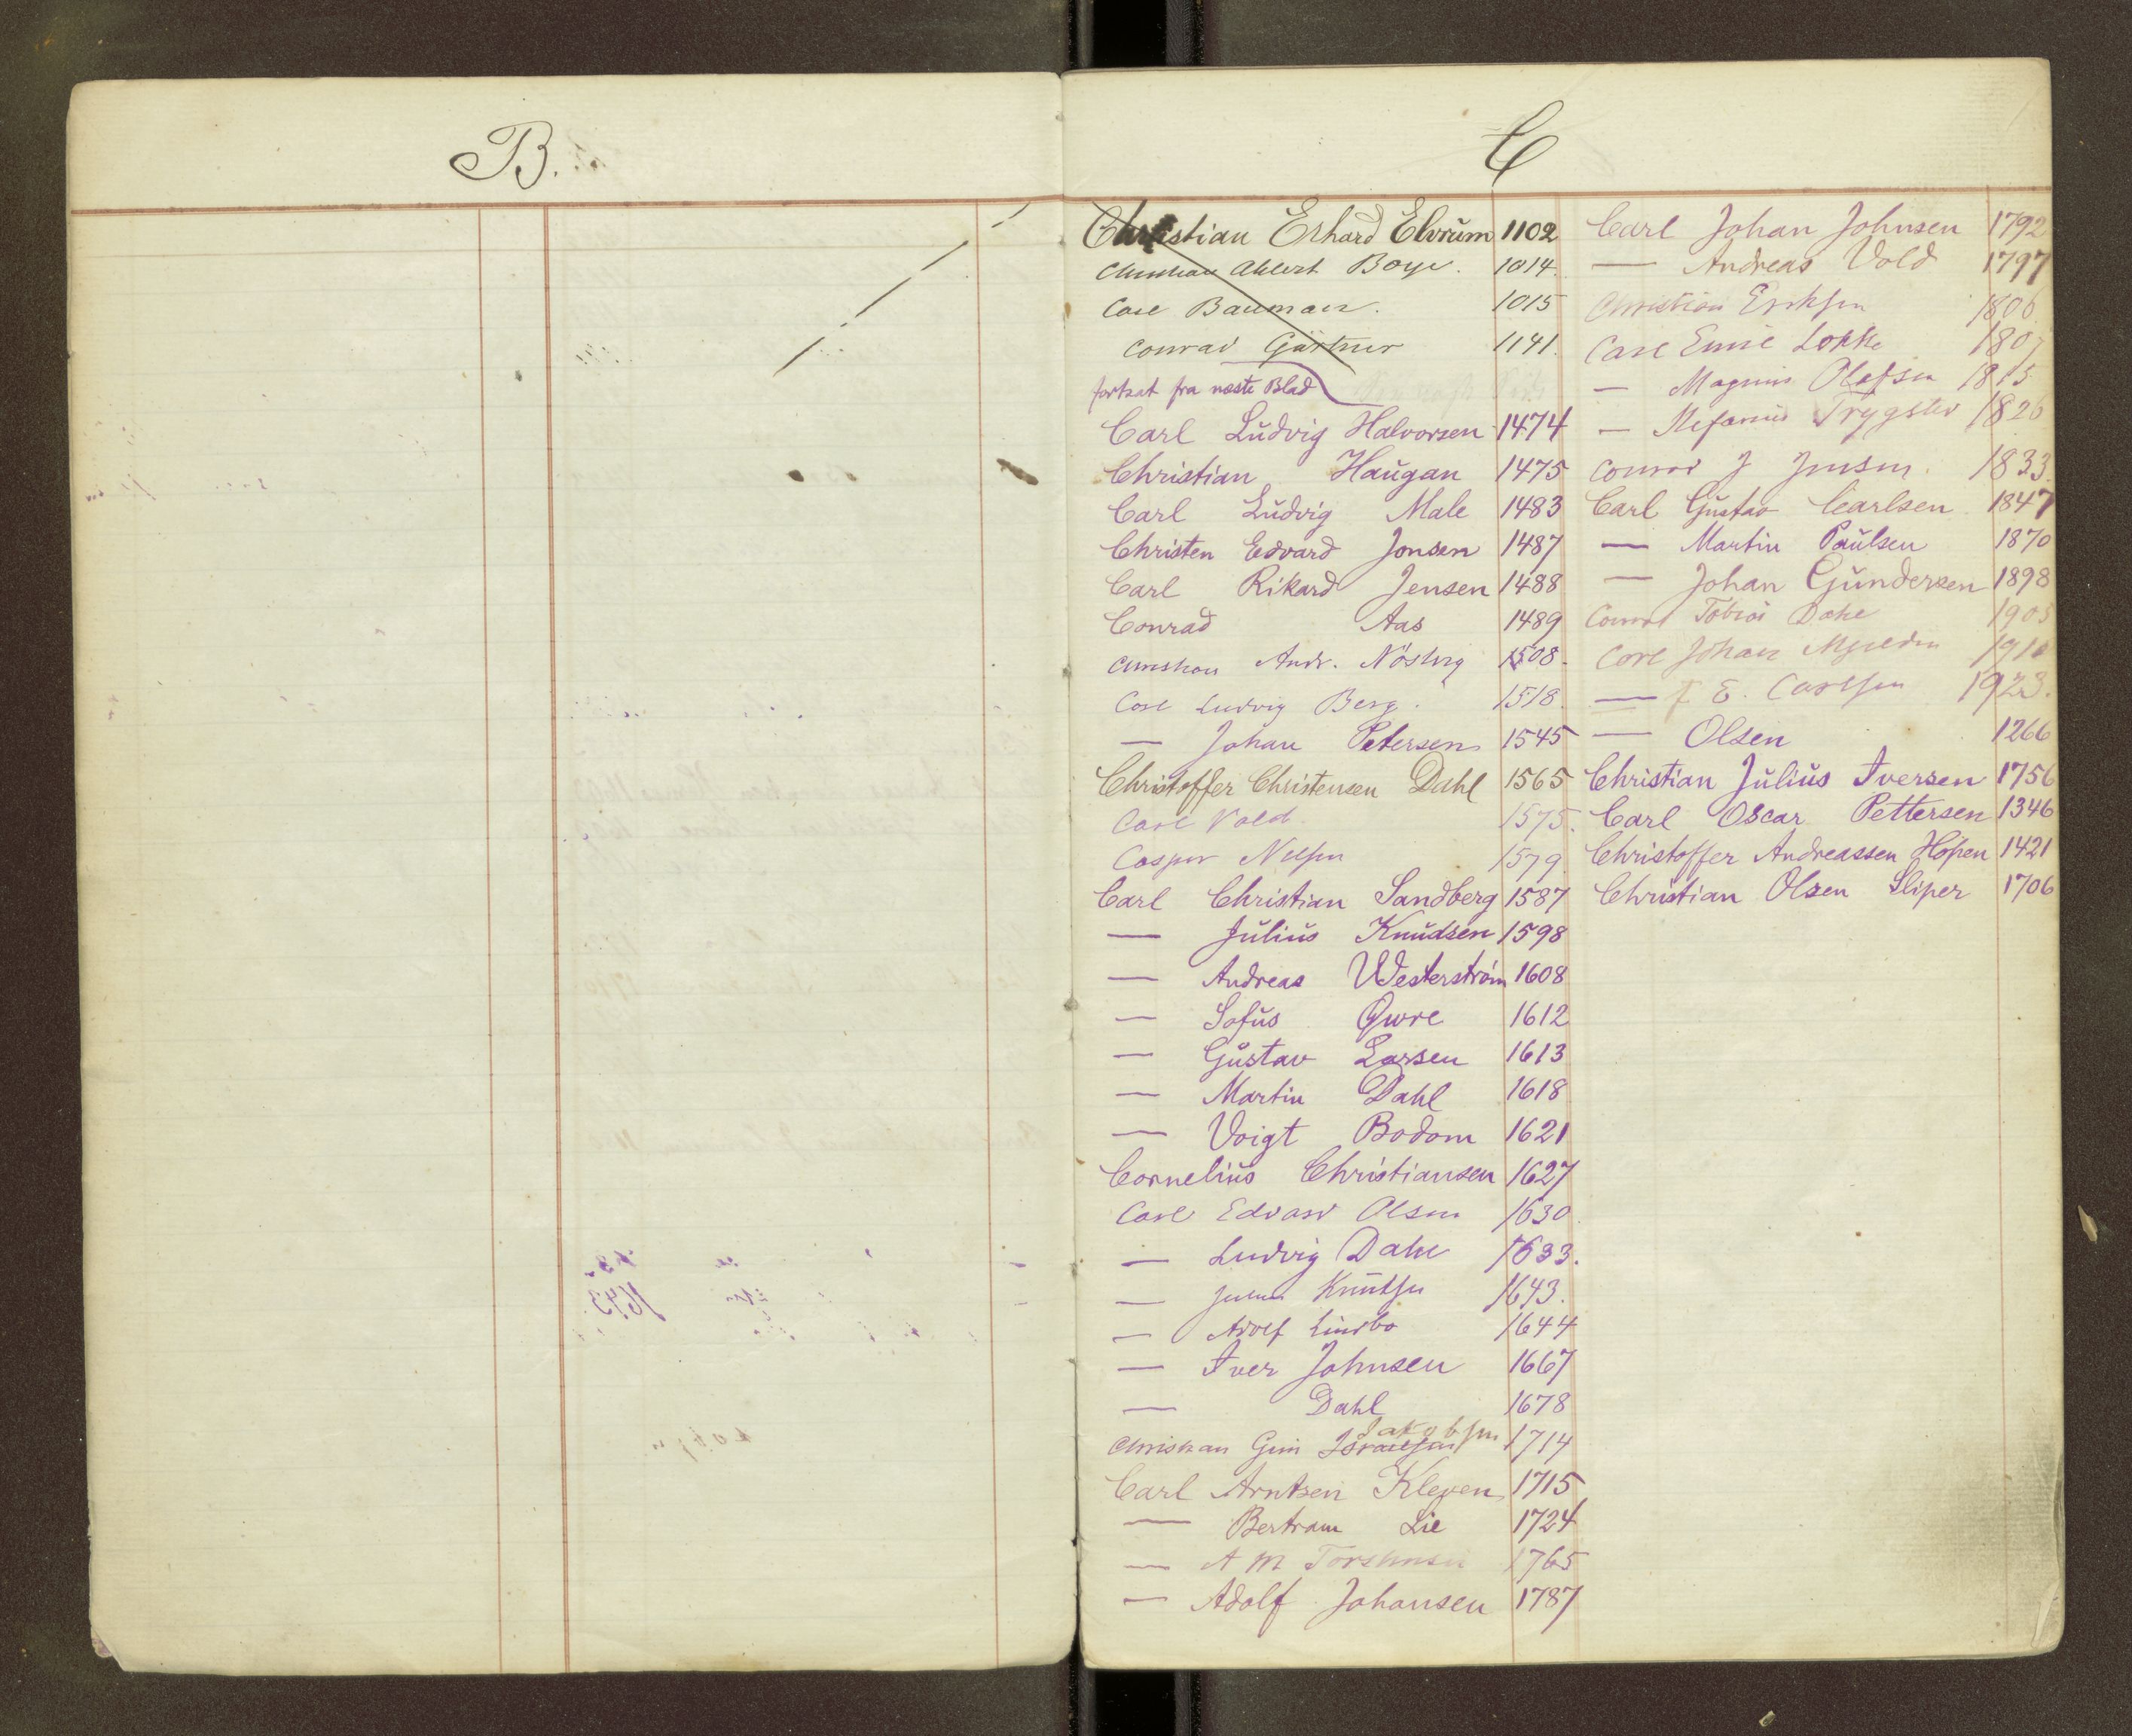 B.
C
Christian Erhard Elvrŭm 1102
Christian Ahlert Boye. 1014.
Carl Bauman. 1015
Conrad Gärtner 1141.
fortsat fra næste Blad
Carl Lŭdvig Halvorsen 1474
Christian Haŭgan 1475
Carl Lŭdvig Male 1483
Christen Edvard Jonsen 1487
Carl Rikard Jensen 1488
Conrad Aas 1489
Christian Andr. 1508.
Carl Ludvig Berg. 1518.
— Johan Petersen 1545
Christoffer Christensen Dahl 1565
Carl Vold 1575.
Casper Nilsen 1579
Carl Christian Sandberg 1587
— Jŭliŭs Knŭdsen 1598
— Andreas Westerström 1608
— Sofŭs Qvre 1612
— Gŭstav Larsen 1613
— Martin Dahl 1618
— Voigt Bodom 1621
Corneliŭs Christiansen 1627
Carl Edvard Olsen 1630
— Ludvig Dahl 1633.
— Julius Knŭtsen 1643.
— Adolf Lindbo 1644
— Iver Johnsen 1667
— Dahl 1678
Jakobsen
Christian Israelsen 1714
Carl Arntsen Kleven 1715
— Bertram Lie 1724
— A M Torstensen 1765
— Adolf Johansen 1787
Carl Johan Johnsen 1792
— Andreas Vold 1797
Christian Eriksen 1806
Carl Emil Løkke 1807
— Magnus Olafsen 1815
— Stefanus Trygstad 1826
Conrad J Jensen. 1833.
Carl Gŭstav Carlsen 1847
— Martin Paŭlsen 1870
— Johan Gŭndersen 1898
Conrad Tobias Dahl 1903
Carl Johan 1910
— E. Carlsen 1923.
— Olsen 1266
Christian Jŭliŭs Iversen 1756
Carl Oscar Pettersen 1346
Christoffer Andreassen Hopen 1421
Christian Olsen Sliper 1706